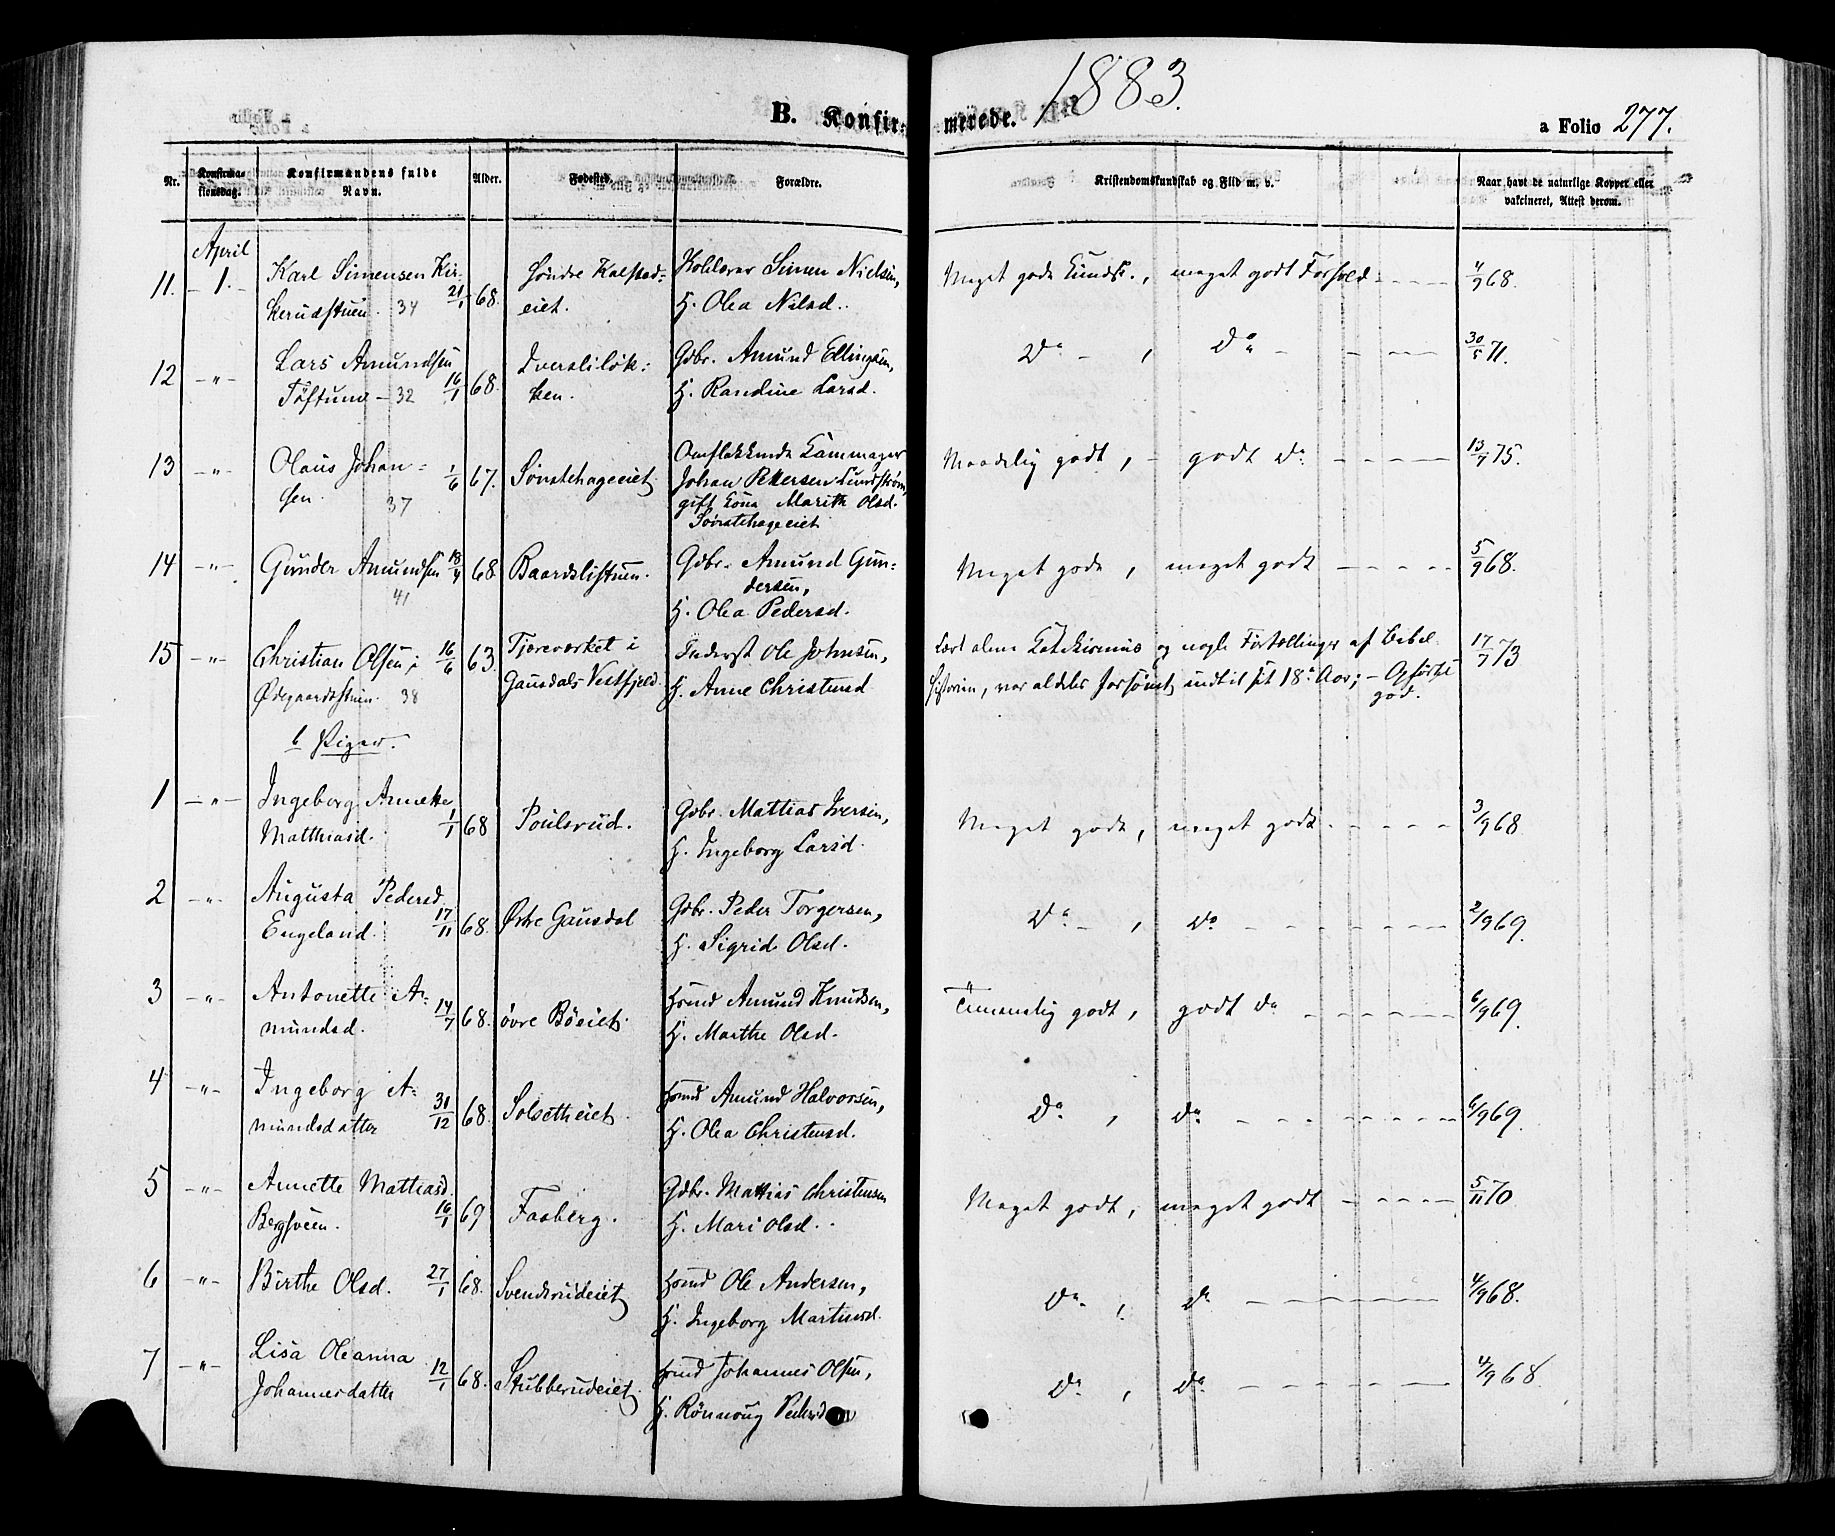 1883.
B. Konfir= merede.
a Folio 277.
Nr. Konfirma- tionsdag. Konfirmandens fulde Navn. Alder. Fødested. Forældre. Kristendomskundskab og Flid m. v. Naar havt de naturlige Kopper eller vakcineret, Attest derom.
April
11. - 1. - Karl Simensen Kir- 21/1 68. Søndre Kalstad- Simen Nielsen, Meget godt, meget godt Forhold - - - 4/9 68.
kerudstuen. 34 eiet. H. Olea Nilsd.
12 -"- Lars Amundsen 16/1 68. Gdbr. Amund Ellingsen, Do - , Do - - - - 30/5 71.
Töftum - 32 ken. H. Randine Larsd.
13 -"- Olaus Johan- 1/6 67. Sönstehageeiet. Omflakkende Kammager Maadelig godt, - godt Do - - - - 13/7 75.
sen. 37 Johan Pettersen Lundström,
gift Kona Marith Olsd.
Sönstehageeiet
14 -"- Gunder Amundsen 18/4 68. Baardslistuen. Gdbr. Amund Gun- Meget godt, meget godt - - - - 5/9 68.
41 dersen,
H. Olea Pedersd.
15 -"- Christian Olsen i 16/6 63. Tjæreværket i Inderst Ole Johnsen, Lært alene Katekismus og nogle Fortællinger af Bibel- 17/7 73
Ødegaardsstuen. 38 Gausdals Vestfjeld. H. Anne Christensd. historien, var aldeles forsömt indtil sit 18de Aar; - Opförsel
god.
b Piger.
1 -"- Ingeborg Annette 1/1 68 Poulsrud. Gdbr. Mattias Iversen, Meget godt, meget godt. - - - - 3/9 68
Matthiasd. H. Ingeborg Larsd.
2 -"- Augusta Pedersd. 17/11 68. Østre Gausdal Gdbr. Peder Torgersen, Do - , Do - - - - 2/9 69.
Engeland. H. Sigrid Olsd.
3 -"- Antonette A- 14/7 68. övre Böeiet. Hsmd Amund Knudsen, Temmelig godt, godt Do - - - - 6/9 69.
mundsd. H. Marthe Olsd.
4 -"- Ingeborg A- 31/12 68. Solsetheiet. Hsmd Amund Halvorsen, Do , Do - - - - 6/9 69.
mundsdatter H. Olea Christensd.
5 -"- Annette Mattiasd. 16/1 69 Faaberg. Gdbr. Mattias Christensen Meget godt, meget godt - - - - 5/11 70
Bergsveen. H. Mari Olsd.
6 -"- Birthe Olsd. 27/1 68. Svendsrudeiet Hsmd Ole Andersen, Do , Do - - - - 4/9 68.
H. Ingeborg Martinsd.
7 -"- Lisa Oleanna 12/1 68. Stubberudeiet. Hsmd Johannes Olsen, Do , Do - - - - 4/9 68.
Johannesdatter H. Rönnoug Pedersd.